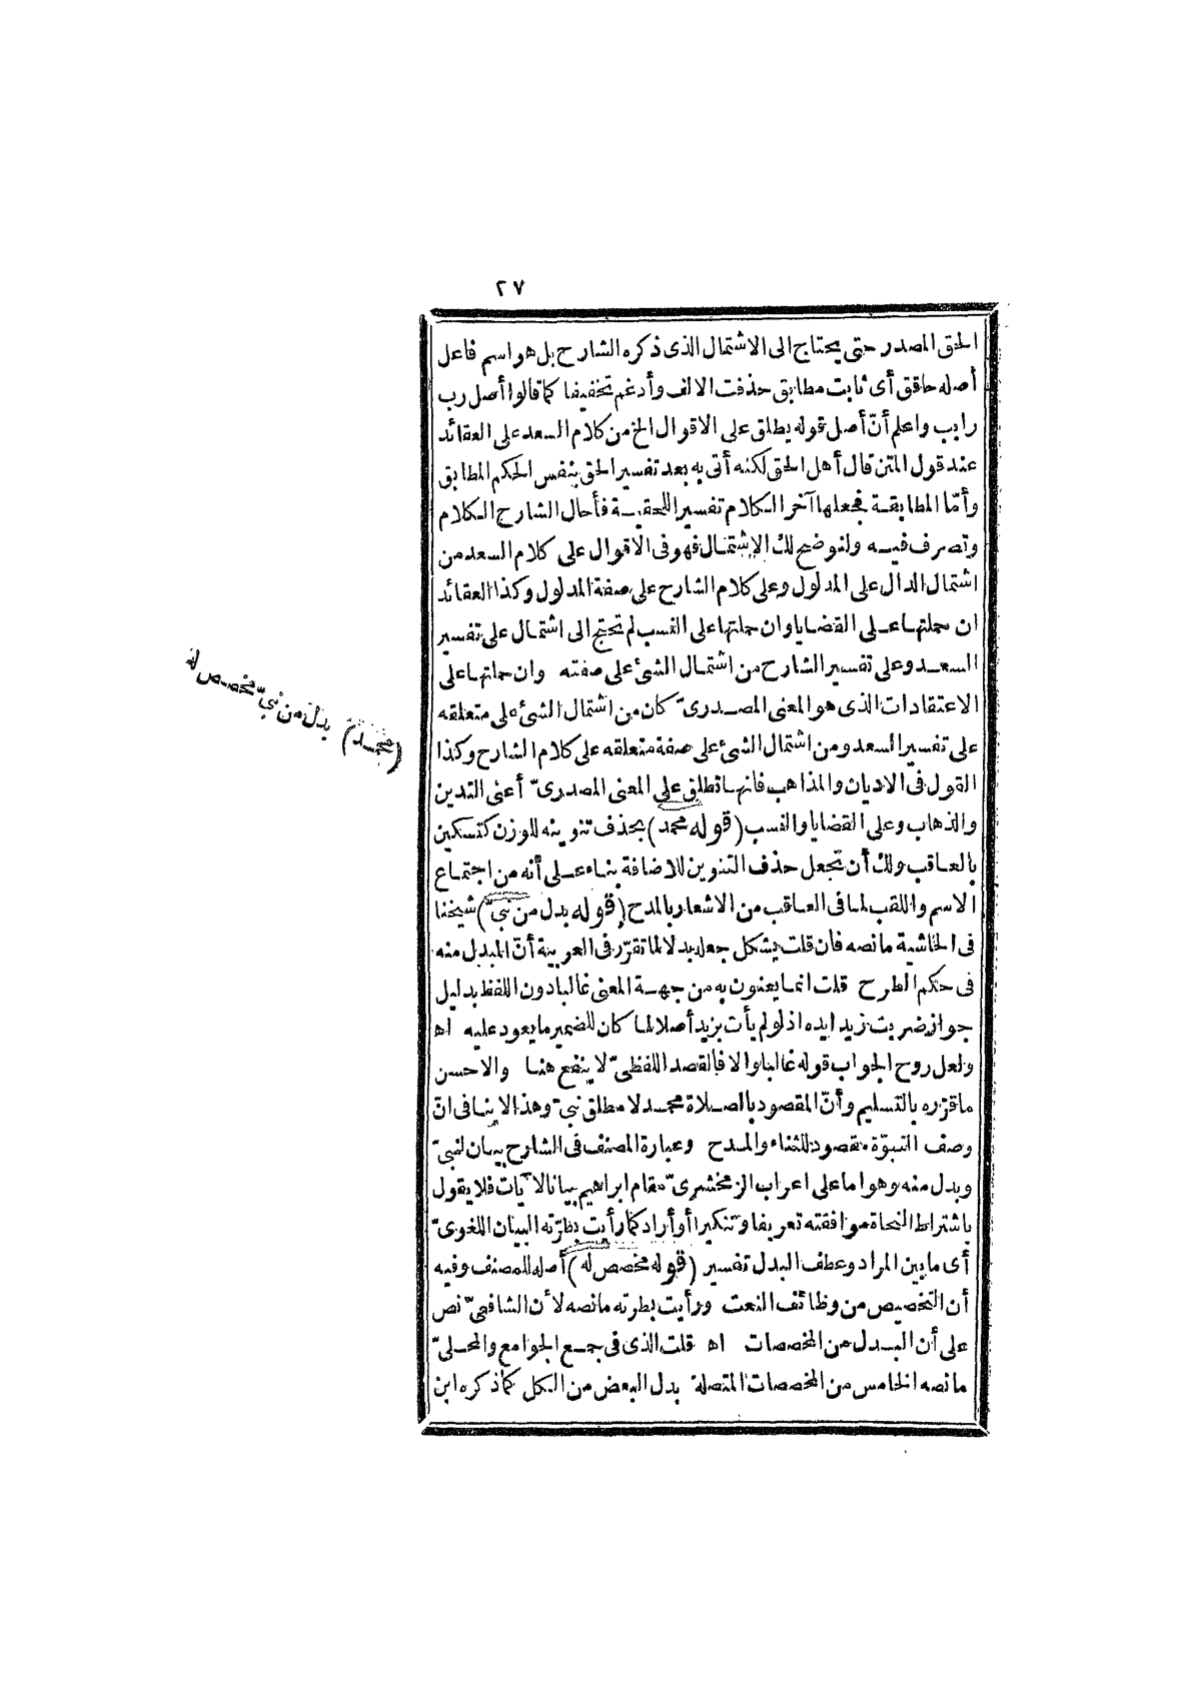 ٢٧
الحق المصدر حتى يحتاج الى الاشتمال الذى ذكره الشارح بل هو اسم فاعل
أصله حاقق أى ثابت مطابق حذفت الالف وأدغم تخفيفا كما قالوا أصل رب
رابب واعلم أنّ أصل قوله يطلق على الاقوال الخ من كلام السعد على العقائد
عند قول المتن قال أهل الحق لكنه أتى به بعد تفسير الحق بنفس الحكم المطابق
وأمّا المطابقة فجعلها آخر الكلام تفسيرا للحقية فأحال الشارح الكلام
وتصرف فيه ولنوضح لك الاشتمال فهو فى الاقوال على كلام السعد من
اشتمال الدال على المدلول وعلى كلام الشارح على صفة المدلول وكذا العقائد
ان حملتها على القضايا وان حملتها على النسب لم تحتج الى اشتمال على تفسير
السعد وعلى تفسير الشارح من اشتمال الشئ على صفته وان حملتها على
الاعتقادات الذى هو المعنى المصدرىّ كان من اشتمال الشئ على متعلقه
على تفسير السعد ومن اشتمال الشئ على صفة متعلقه على كلام الشارح وكذا
القول فى الاديان والمذاهب فانها تطلق على المعنى المصدرىّ أعنى التدين
والذهاب وعلى القضايا والنسب (قوله محمد) بحذف تنوينه للوزن كتسكين
بالعاقب ولك أن تجعل حذف التنوين للاضافة بناء على أنه من اجتماع
الاسم واللقب لما فى العاقب من الاشعار بالمدح (قوله بدل من نبىّ) شيخنا
فى الحاشية ما نصه فان قلت يشكل جعله بدلا لما تقرّر فى العربية أنّ المبدل منه
فى حكم الطرح قلت انما يعنون به من جهة المعنى غالبا دون اللفظ بدليل
جواز ضربت زيدا يده اذ لو لم يأت بزيد أصلا لما كان للضمير ما يعود عليه اه
ولعل روح الجواب قوله غالبا والا فالقصد اللفظىّ لا ينفع هنا والاحسن
ما قرّره بالتسليم وأنّ المقصود بالصلاة محمد لا مطلق نبىّ وهذا لا ينافى انّ
وصف النبوّة مقصود للثناء والمدح وعبارة المصنف فى الشارح بيان لنبىّ
وبدل منه وهو اما على اعراب الزمخشرىّ مقام ابراهيم بيانا لآيات فلا يقول
باشتراط النحاة موافقته تعريفا وتنكيرا أو أراد كما رأيت بطرّته البيان اللغوىّ
أى ما يبين المراد وعطف البدل تفسير (قوله مخصص له) أصله للمصنف وفيه
أن التخصيص من وظائف النعت ورأيت بطرته ما نصه لأن الشافعىّ نص
على أن البدل من المخصصات اه قلت الذى فى جمع الجوامع والمحلىّ
ما نصه الخامس من المخصصات المتصلة بدل البعض من الكل كما ذكره ابن
(محمد) بدل من نبىّ مخصص له